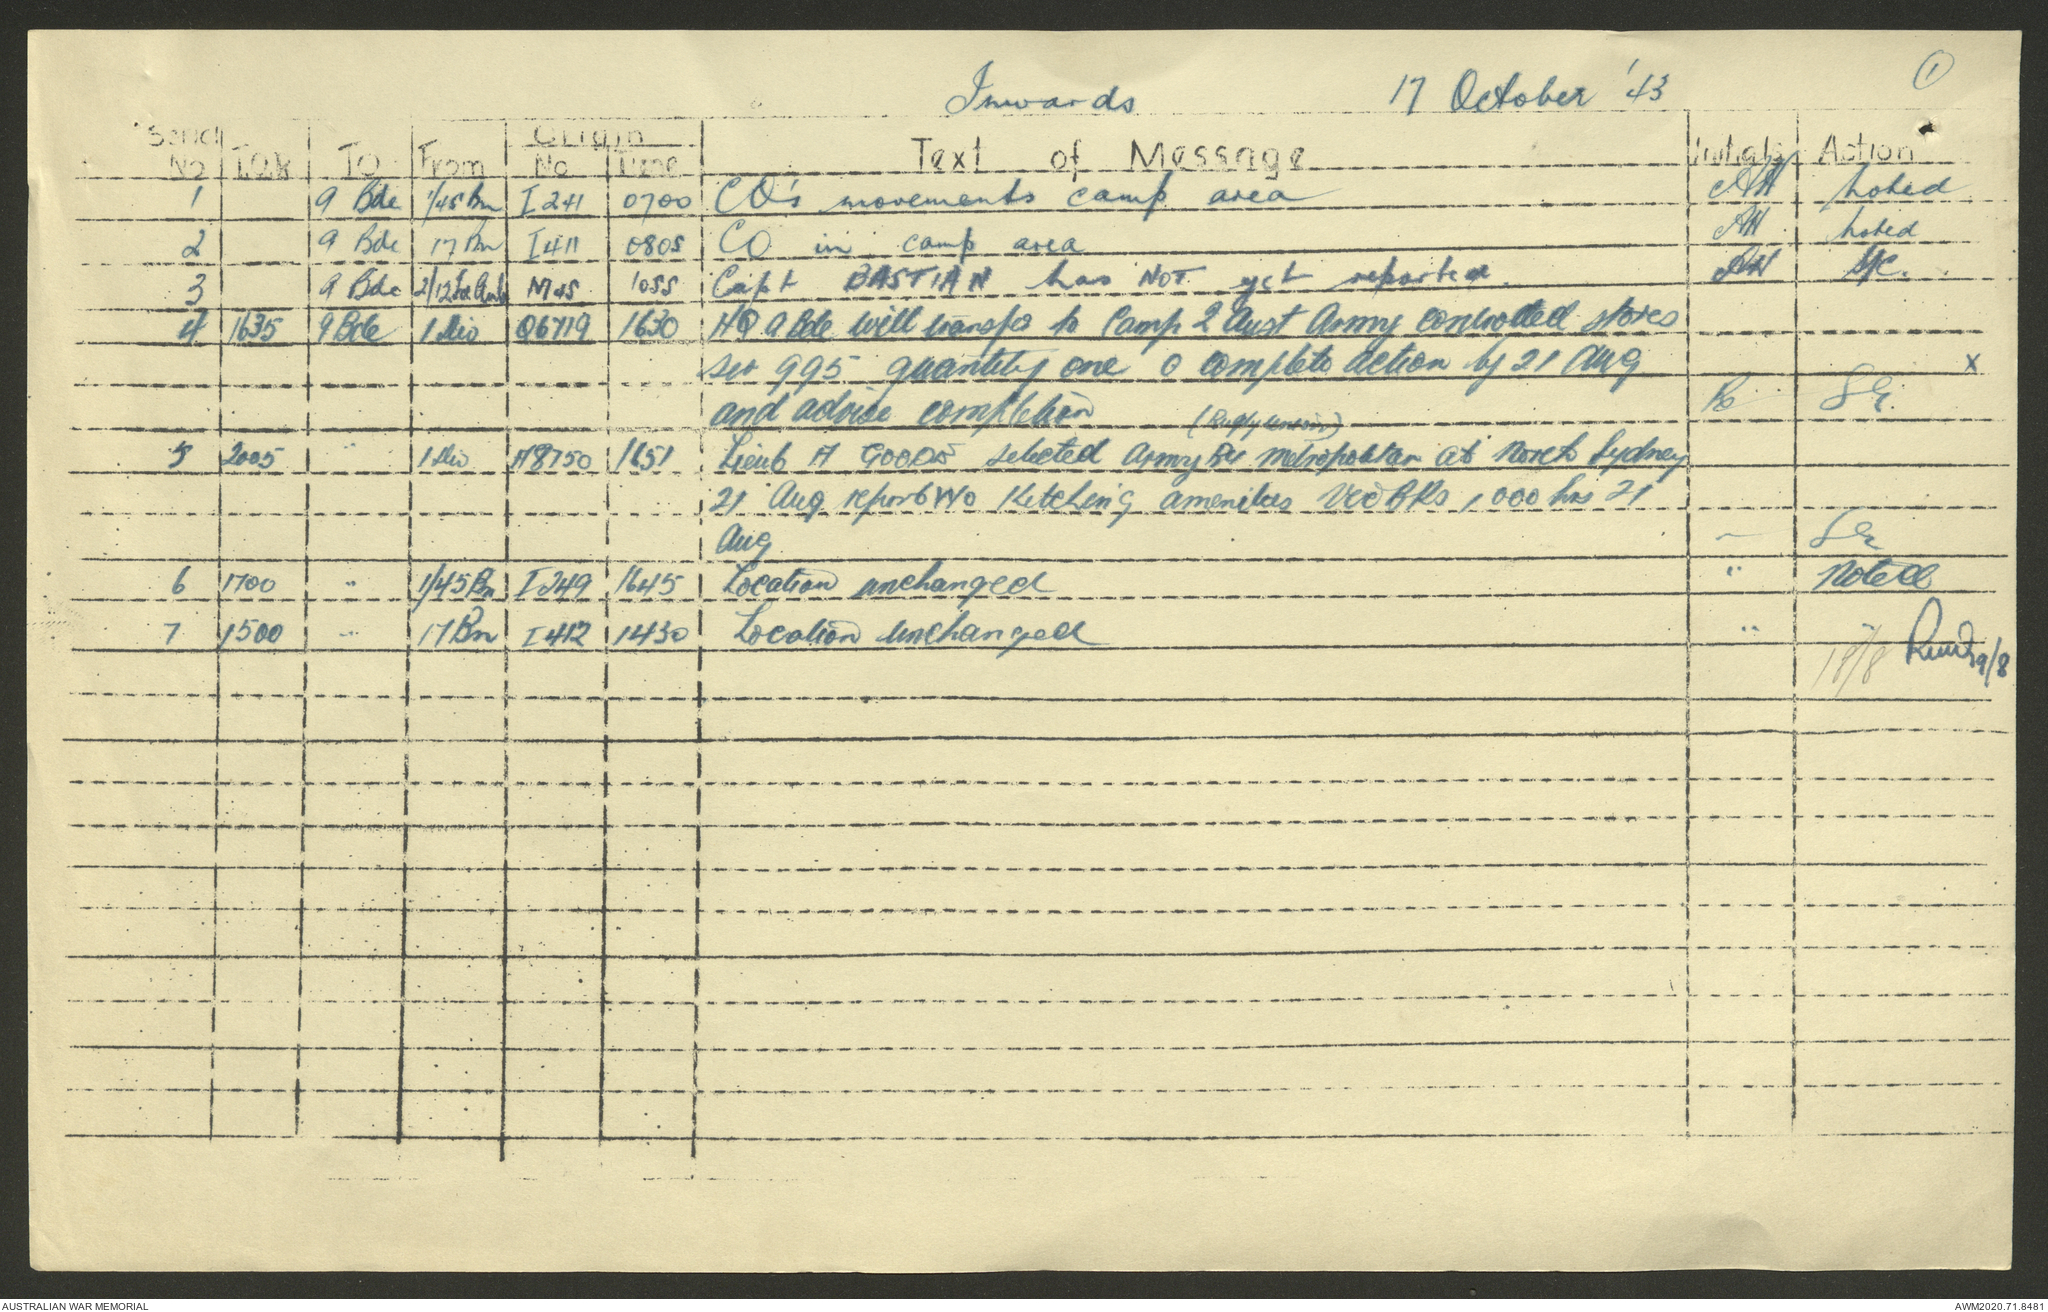 Inwards 17 October '43 1
Serial No To From Origin No Time Text of Message Initials Action
1 9 Bde 1/45 Bn I241 0700 CO's movements camp area AH noted
2 9 Bde 17 Bn I411 0805 CO in camp area AH noted
3 9 Bde 2/12 Fd Amb M45 1055 Capt BASTIAN has NOT yet reported. AH
4 1635 9 Bde 1 Div Q6719 1630 HQ 9 Bde will transfer to Camp 2 Aust Army controlled stores
995 quantity one O complete action by 21 Aug X
and advise completion
(Rugby Union)
5 2005 " 1 Div A8750 1651 Lieut A GOODS selected Army metropolitan at North Sydney
21 Aug report WO Ketching amenities Vic Bks 1000 hrs 21
Aug
6 1700 " 1/45 Bn I249 1645 Location unchanged " Noted
7 1500 " 17 Bn I412 1430 Location unchanged " "
18/8 19/8
AUSTRALIAN WAR MEMORIAL AWM2020.71.8481